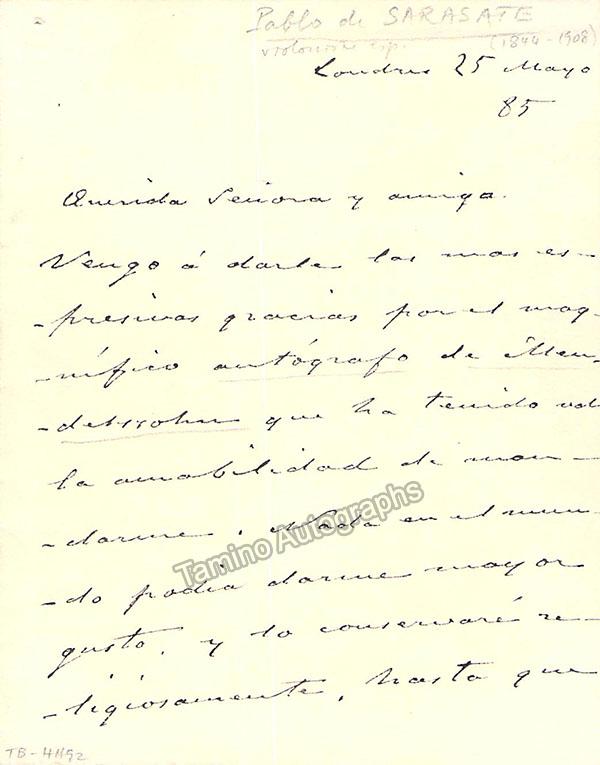 Pablo de SARASATE
violoniste esp. (1844-1908)
Londres 25 Mayo
85
Querida Señora y amiga.
Vengo á darle las mas es-
-presivas gracias por el mag-
-nífico autógrafo de Men-
-delssohn que ha tenido vd
la amabilidad de man-
-darme. Nada en el mun-
-do podia darme mayor
gusto, y lo conservaré re-
-ligiosamente, hasta que
Tamino Autographs
TB-HH92